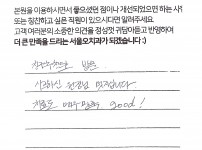 본원을 이용하시면서 좋으셨던 점이나 개선되었으면 하는 사
또는 칭찬하고 싶은 직원이 있으시다면 말해주세요.
고객 여러분의 소중한 의견을 정성껏 귀담아듣고 반영하여
더 큰 만족을 드리는 서울오치과가 되겠습니다 :)
친절하신
원장님 멋지십니다
치료도 매우 만족 good!